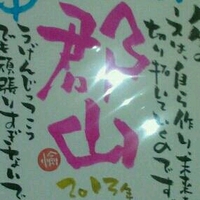 は自ら作り未来を
切り拓いていくものです
郡山
うげんじっこう
でも頑張りすぎないで
2013